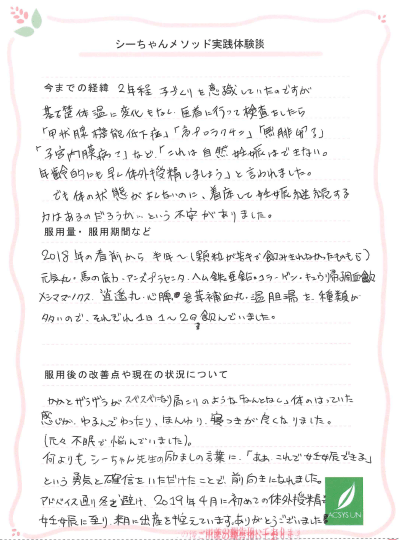 シーちゃんメソッド実践体験談
今までの経緯 2年程 子づくりを意識していたのですが
基礎体温に変化もなく、医者に行って検査をしたら
「甲状腺機能低下症」「高プロラクチン」「黄体
「子宮内膜 など、「これは自然妊娠はできない。
年齢的にも早く体外授精しましょう」と言われました。
でも体の状態がよくないのに、着床して妊娠継続する
力はあるのだろうか、という不安がありました。
服用量・服用期間など
2018年の春前から 半年〜(顆粒が苦手で飲みきれなかったものも)
元気丸・馬の底力・アンズプラセンタ・ヘム鉄亜鉛・コラーゲン・キュウ帰調血飲
逍遥丸・心脾 養補血丸・温胆湯 を、種類が
多いので、それぞれ1日1〜2回飲んでいました。
服用後の改善点や現在の状況について
かかとザラザラがスベスベになり肩こりのような なんとなく、体のはっていた
感じが、ゆるんでわったり、ほんわり、寝つきが良くなりました。
(元々不眠で悩んでいました)。
何よりもシーちゃん先生の励ましの言葉に、「ああ、これで妊娠できる」
という勇気と確信をいただけたことで、前向きになれました。
アドバイス通り冬を避け、2019年4月に初めての体外授精
妊娠に至り、 月に出産を控えています。ありがとうございました
ACSYS LIN